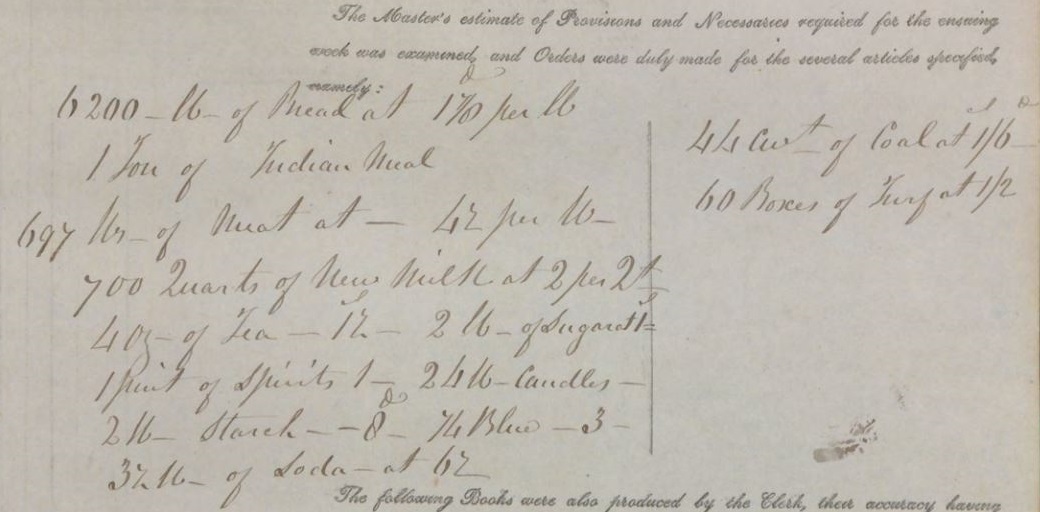 The Master's estimate of Provisions and Necessaries required for the ensuing
week was examined, and Orders were duly made for the several articles specified,
namely:
6200 - lb - of Bread at per lb
1 Ton of Indian Meal
697 lbs - of Meat at - 4½ per lb -
700 Quarts of New Milk at 2 per Qt
4 oz - of Tea - - 2 lb - of Sugar at
1 pint of Spirits 1 - 24 lb - Candles -
2 lb - Starch - - 8 - Blue - 3 -
lb - of Soda - at 6½
44 Cwt of Coal at 1/6
60 Boxes of Turf at 1/2
The following Books were also produced by the Clerk, their accuracy having